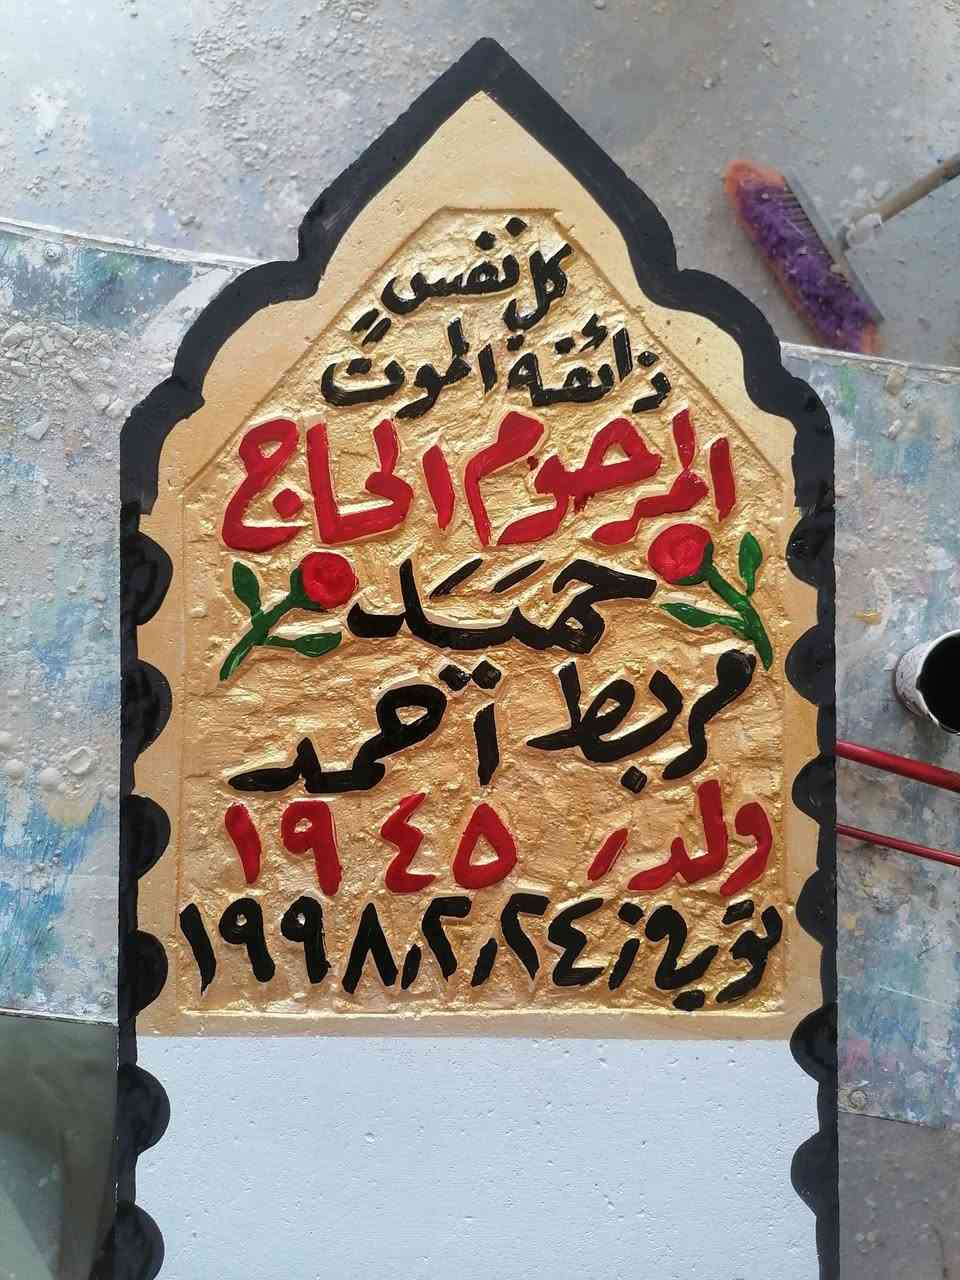 كل نفسٍ
ذائقة الموت
المرحوم الحاج
حميد
مربط آحمد
ولد ١٩٤٥
توفي ٢٤،٢،١٩٩٨